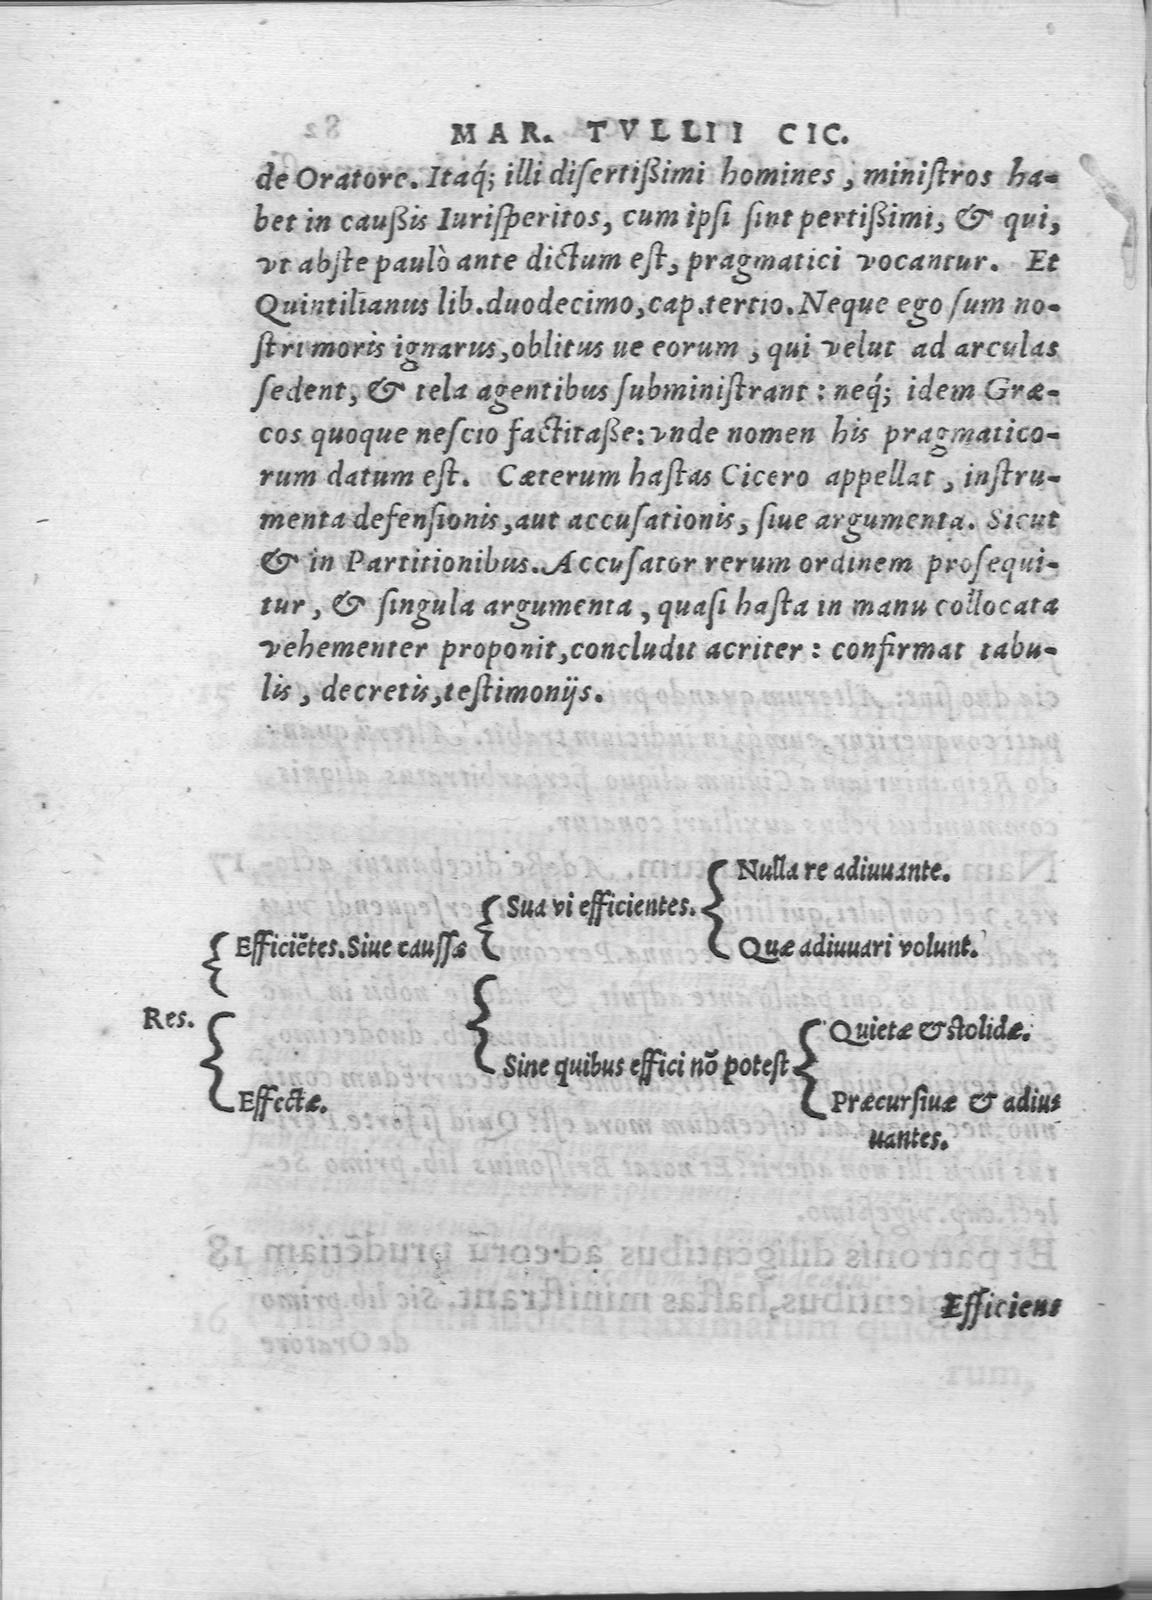 MAR. TVLLII CIC.
de Oratore. Itaq́; illi disertißimi homines, ministros ha-
bet in caußis Iurisperitos, cum ipsi sint pertißimi, & qui,
vt abste paulò ante dictum est, pragmatici vocantur. Et
Quintilianus lib. duodecimo, cap. tertio. Neque ego sum no-
stri moris ignarus, oblitus ue eorum, qui velut ad arculas
sedent, & tela agentibus subministrant: neq́; idem Græ-
cos quoque nescio factitaße: vnde nomen his pragmatico-
rum datum est. Cæterum hastas Cicero appellat, instru-
menta defensionis, aut accusationis, siue argumenta. Sicut
& in Partitionibus. Accusator rerum ordinem prosequi-
tur, & singula argumenta, quasi hasta in manu collocata
vehementer proponit, concludit acriter: confirmat tabu-
lis, decretis, testimonijs.
Nulla re adiuuante.
Sua vi efficientes.
Efficiẽtes. Siue caussæ
Quæ adiuuari volunt.
Res.
Quietæ & stolidæ.
Sine quibus effici nõ potest
Effectæ.
Præcursiuæ & adiu-
uantes.
Efficiens